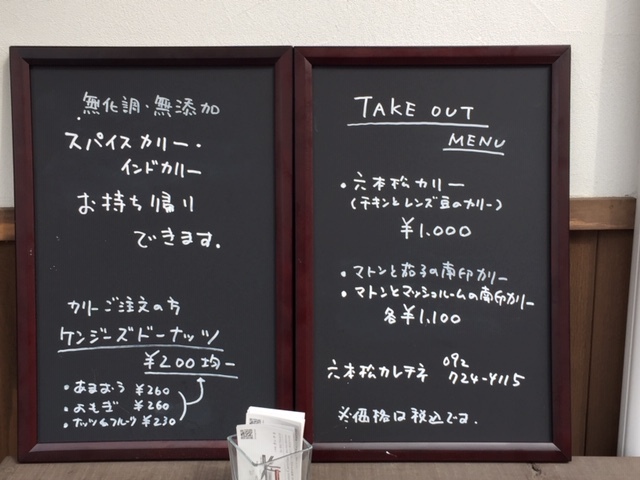 無化調・無添加
スパイスカリー・
インドカリー
お持ち帰り
できます.
カリーご注文の方
ケンジーズドーナッツ
¥200均一
・あまおう ¥260
・よもぎ ¥260
・ナッツ&フルーツ ¥230
TAKE OUT
MENU
・六本松カリー
(チキンとレンズ豆のカリー)
¥1.000
・マトンと茄子の南印カリー
・マトンとマッシュルームの南印カリー
各¥1,100
六本松カレテネ 092
724-4115
※価格は税込です.